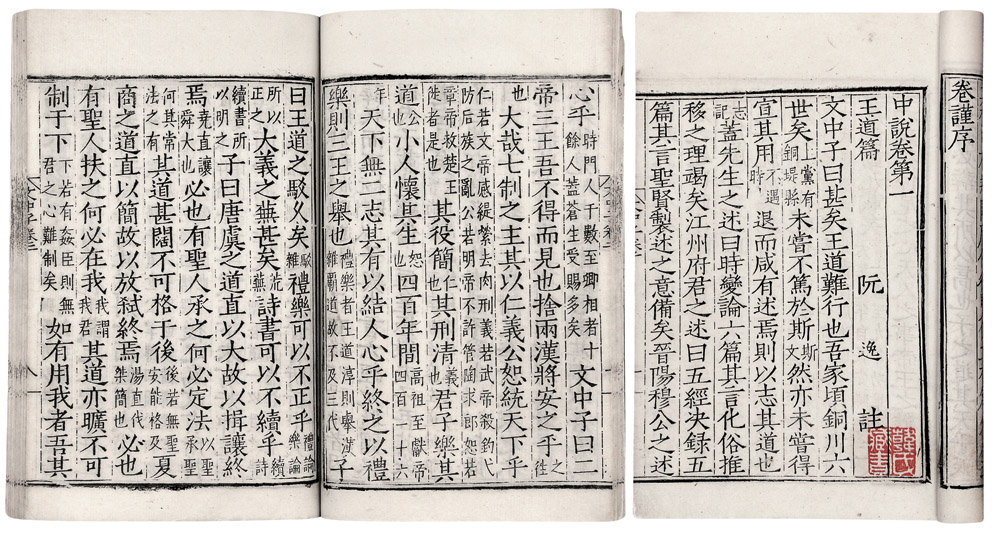 卷謹序
中說卷第一
王道篇 阮逸註
文中子曰甚矣王道難行也吾家頃銅川六
世矣上黨有銅堤縣未嘗不篤於斯斯文然亦未嘗得
宣其用不遇時退而咸有述焉則以志其道也
志記蓋先生之述曰時變論六篇其言化俗推
移之理竭矣江州府君之述曰五經決録五
篇其言聖賢製述之意備矣晉陽穆公之述
心乎時門人千數至卿相者十餘人蓋蒼生受賜多矣文中子曰二
帝三王吾不得而見也捨兩漢將安之乎之往
也大哉七制之主其以仁義公恕統天下乎
仁若文帝感緹縈去肉刑義若武帝殺鈎弋防后族之亂公若明帝不許管陶求郎恕若
章帝赦楚王徙者是也其役簡仁也其刑清義也君子樂其
道公也小人懷其生恕也四百年間高祖至獻帝四百一十六
年天下無二志其有以結人心乎終之以禮
樂則三王之舉也禮樂者王道淳則舉漢雜霸道故不及三代子
曰王道之駮久矣駮雜禮樂可以不正乎禮論樂論
所以正之大義之蕪甚矣荒蕪詩書可以不續乎續詩
續書所以明之子曰唐虞之道直以大故以揖讓終
焉堯直讓舜大也必也有聖人承之何必定法以聖承聖
何其常法之有其道甚闊不可格于後後若無聖安能格及夏
商之道直以簡故以放弑終焉湯直伐桀簡也必也
有聖人扶之何必在我我謂我君其道亦曠不可
制于下下若有姦臣則無君之心難制矣如有用我者吾其